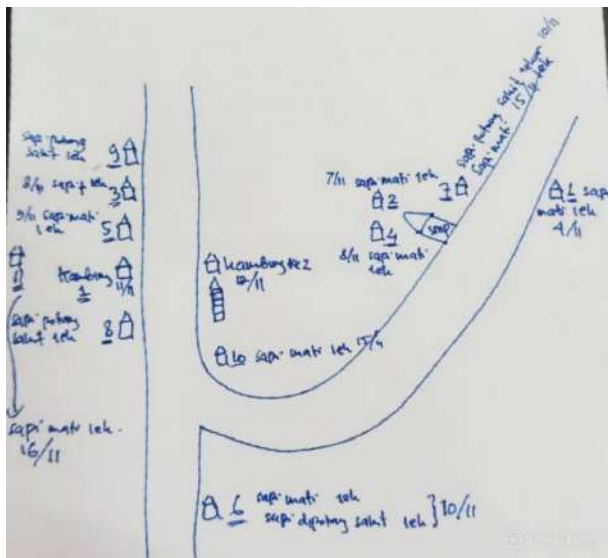 sapi potong
sakit 1ek 9
8/11 sapi + 1ek 3
9/11 sapi mati
1ek 5
11
kambing
1 11/11
sapi potong
sakit 1ek 8
sapi mati 1ek.
16/11
kambing ke 2
12/11
10 sapi mati 1ek 15/11
7/11 sapi mati 1ek
2
4
8/11 sapi mati
1ek
7
sapi potong sakit 1ekor 10/11
sapi mati 15/11 1ek
1 sapi
mati 1ek
4/11
6 sapi mati 1ek
sapi dipotong sakit 1ek } 10/11